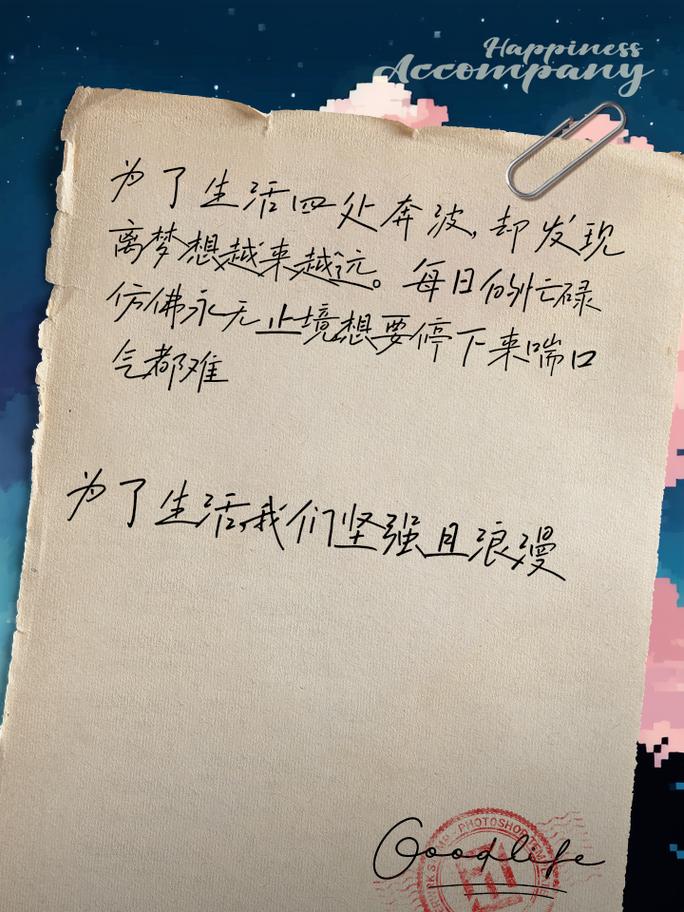 Happiness
Accompany
为了生活四处奔波,却发现
离梦想越来越远。每日的忙碌
仿佛永无止境想要停下来喘口
气都难
为了生活,我们坚强且浪漫
Goodlife
PHOTOSHOP